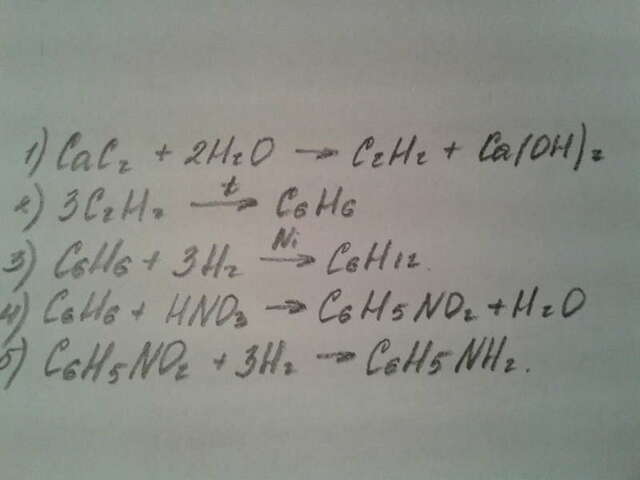 1) CaC₂ + 2H₂O → C₂H₂ + Ca(OH)₂
2) 3C₂H₂ →ᵗ C₆H₆
3) C₆H₆ + 3H₂ →ᴺⁱ C₆H₁₂.
4) C₆H₆ + HNO₃ → C₆H₅NO₂ + H₂O
5) C₆H₅NO₂ + 3H₂ → C₆H₅NH₂.